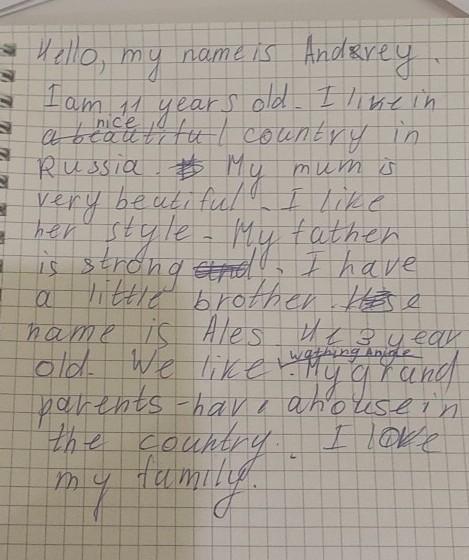 Hello, my name is Andrey.
I am 11 years old. I like in
nice
a beautiful country in
Russia. My mum is
very beutiful. I like
her style. My father
is strong and. I have
a little brother. Hise
name is Ales. He 3 year
wathing Anime
old. We like. My grand
parents-have a house in
the country. I love
my family.